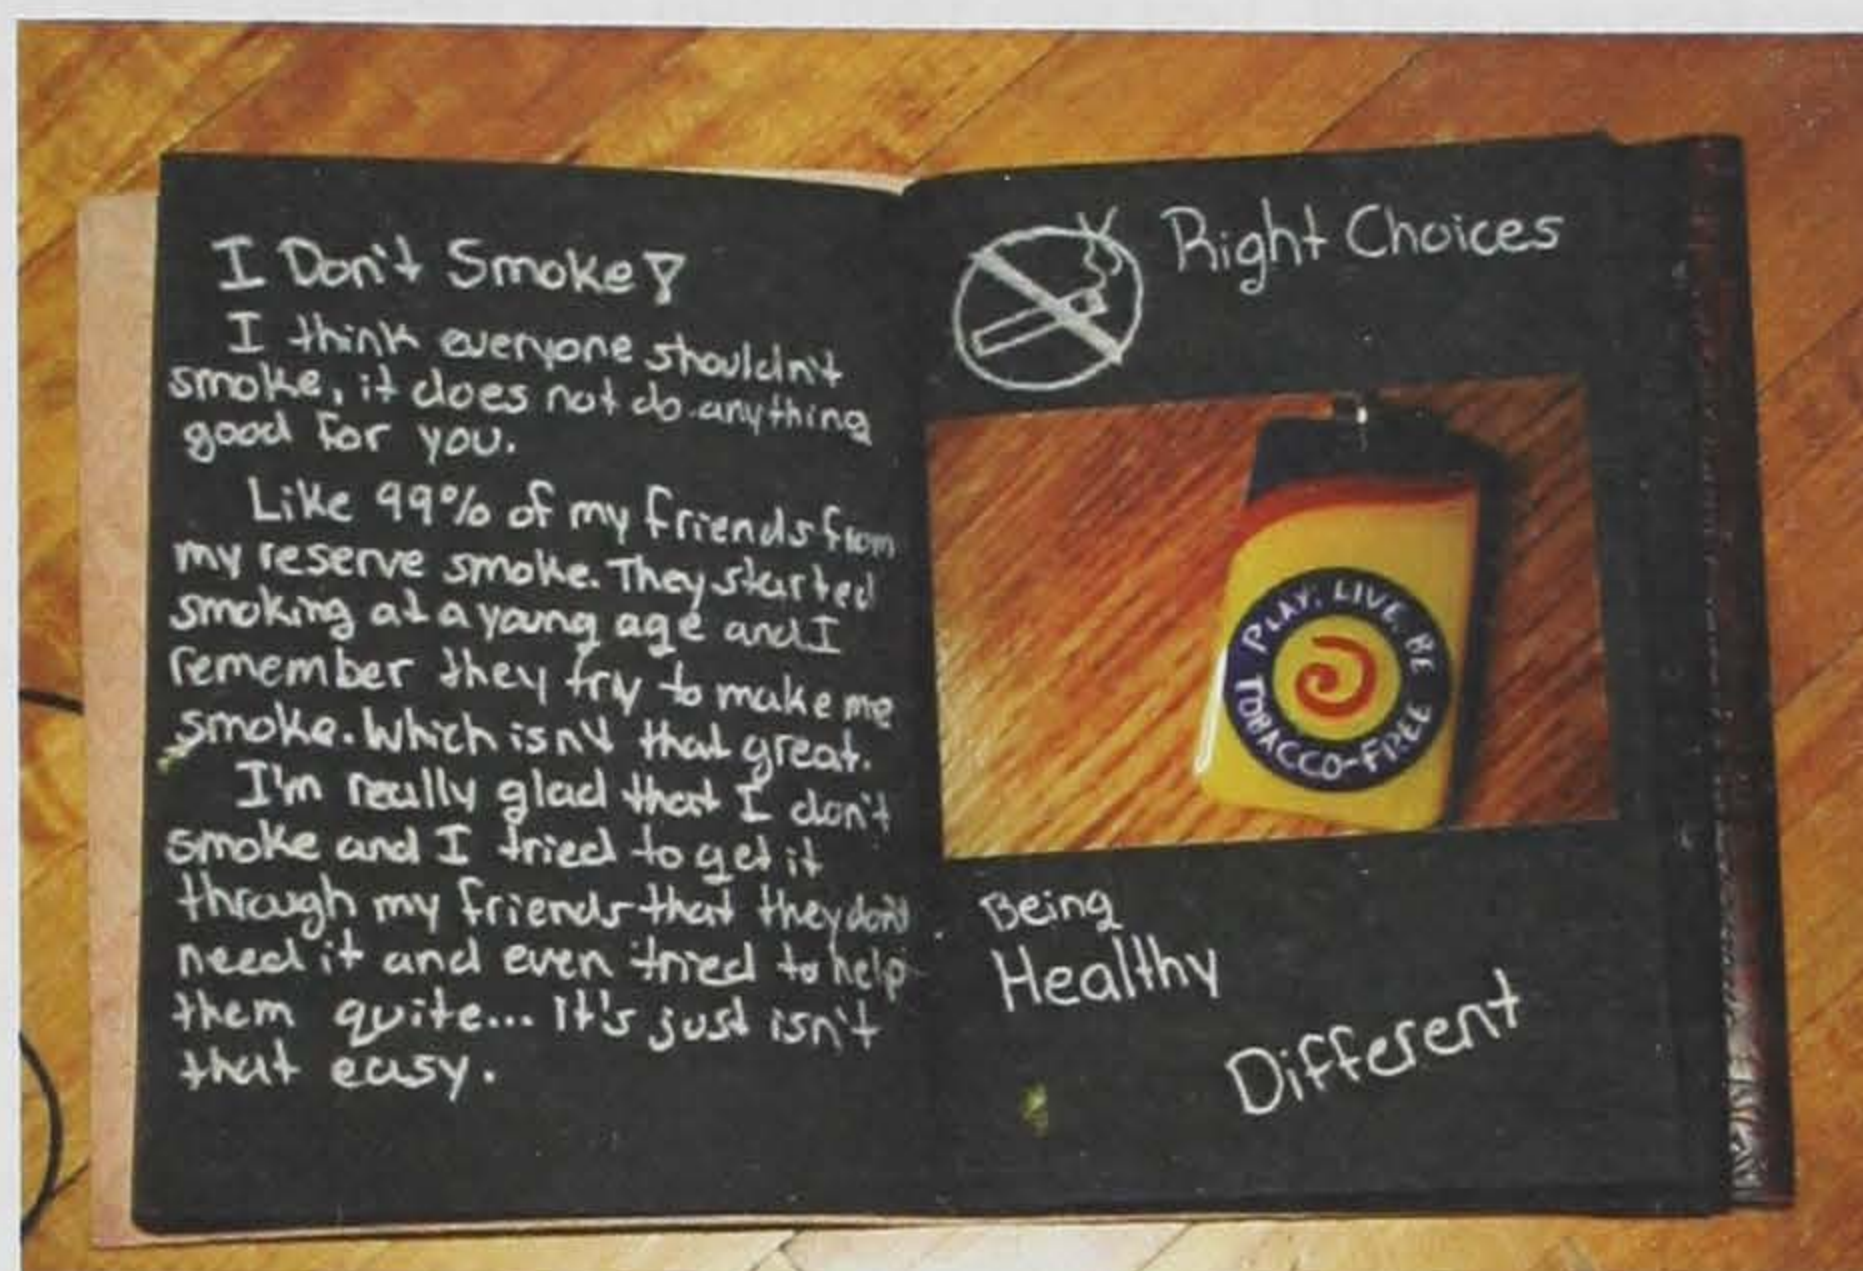 I Don't Smoke!
I think everyone shouldn't
smoke, it does not do anything
good for you.
Like 99% of my friends from
my reserve smoke. They started
smoking at a young age and I
remember they try to make me
smoke. Which isn't that great.
I'm really glad that I don't
smoke and I tried to get it
through my friends that they don't
need it and even tried to help
them quite... It's just isn't
that easy.
Right Choices
PLAY, LIVE, BE
TOBACCO-FREE
Being
Healthy
Different